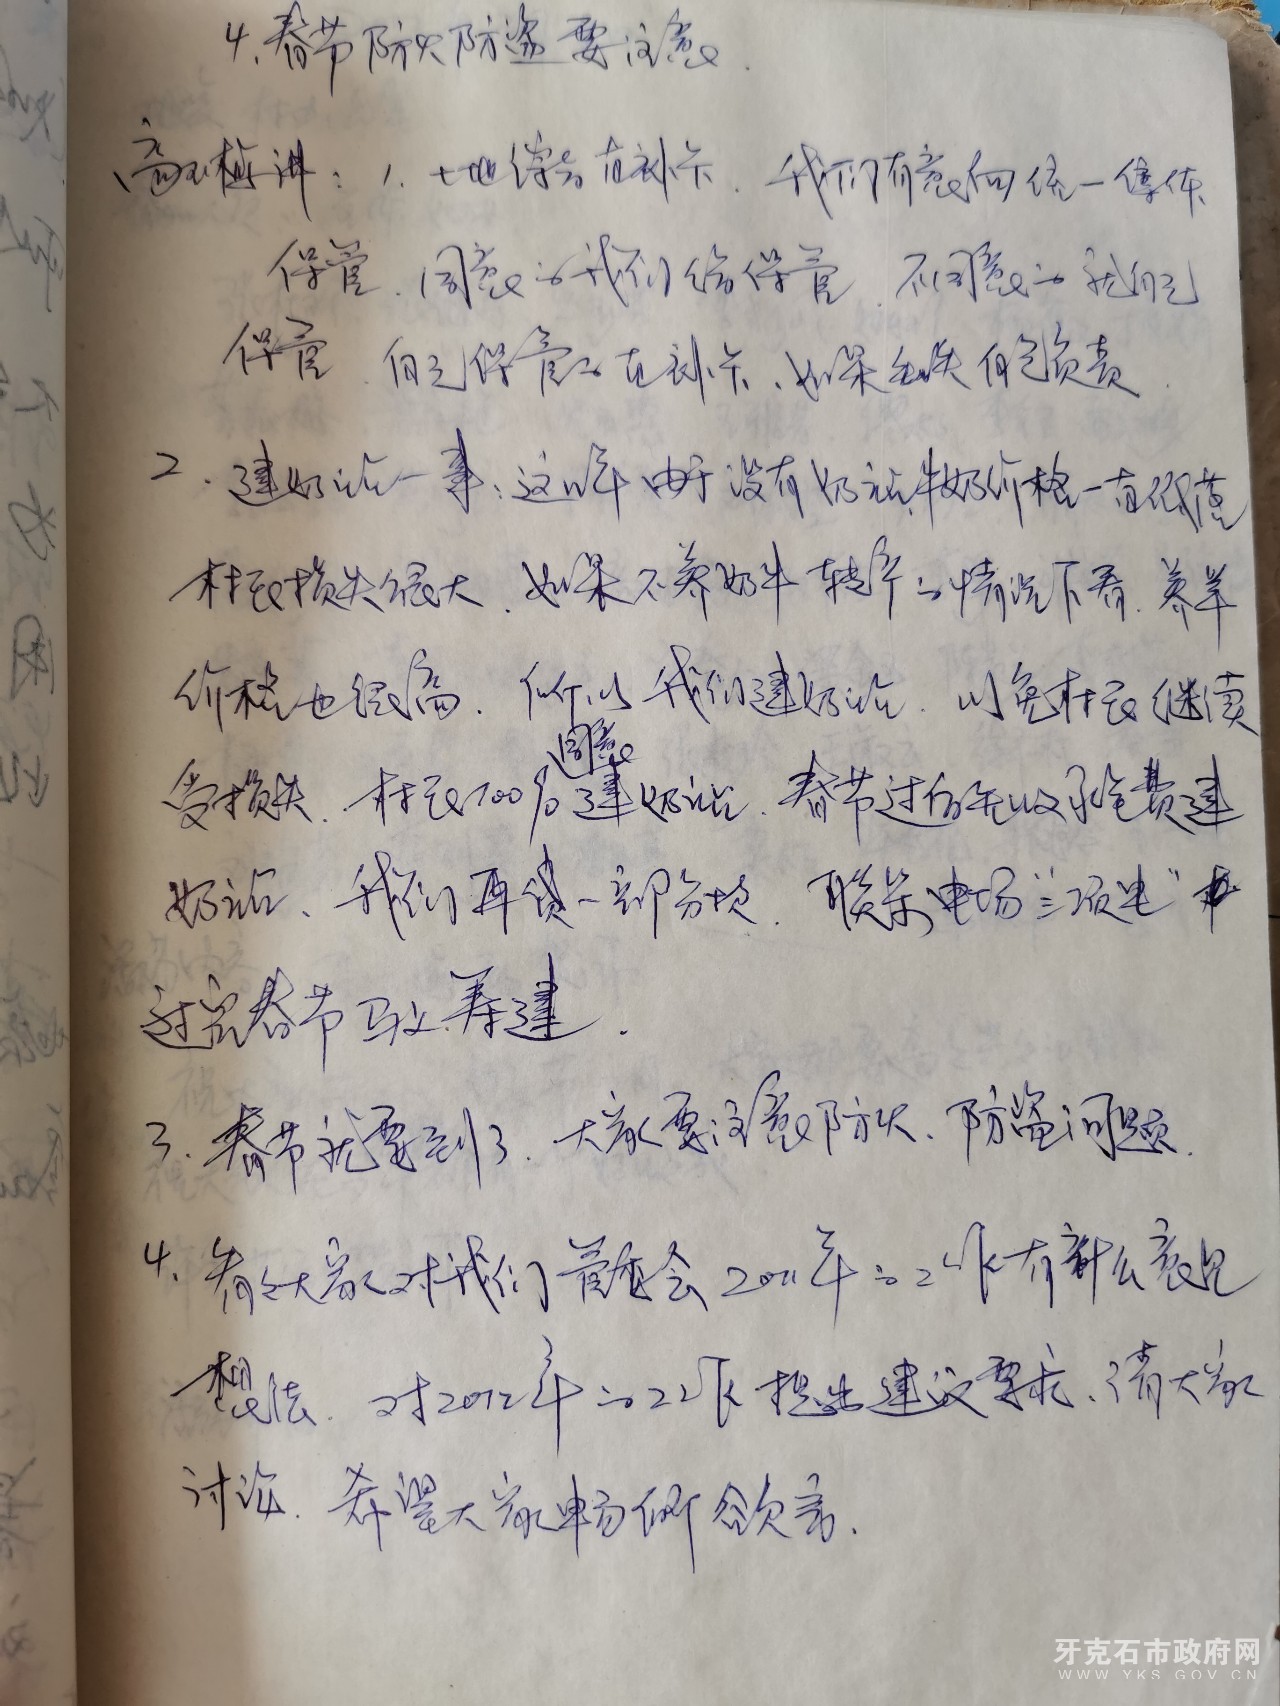 4.春节防火防盗要注意.
讲:1.土地 直补卡.我们有意向统一集体
保管.同意的我们给保管.不同意的就自己
保管.自己保管的直补卡、如果丢失自己负责.
2.建奶站一事:这几年由于没有奶站,牛奶价格一直低落
村民损失很大.如果不养奶牛转产的情况下看.养羊
价格也很高.所以我们建奶站.以免村民继续
受损失.村民100%同意建奶站.春节过后先收承包费建
奶站、我们再贷一部分款.联系电场"三项电"
过完春节马上筹建.
3.春节就要到了.大家要注意防火、防盗问题.
4.看看大家对我们管委会2011年的工作有什么意见
想法.对2012年的工作提出建议要求、请大家
讨论.希望大家畅所欲言.
牙克石市政府网
WWW.YKS.GOV.CN